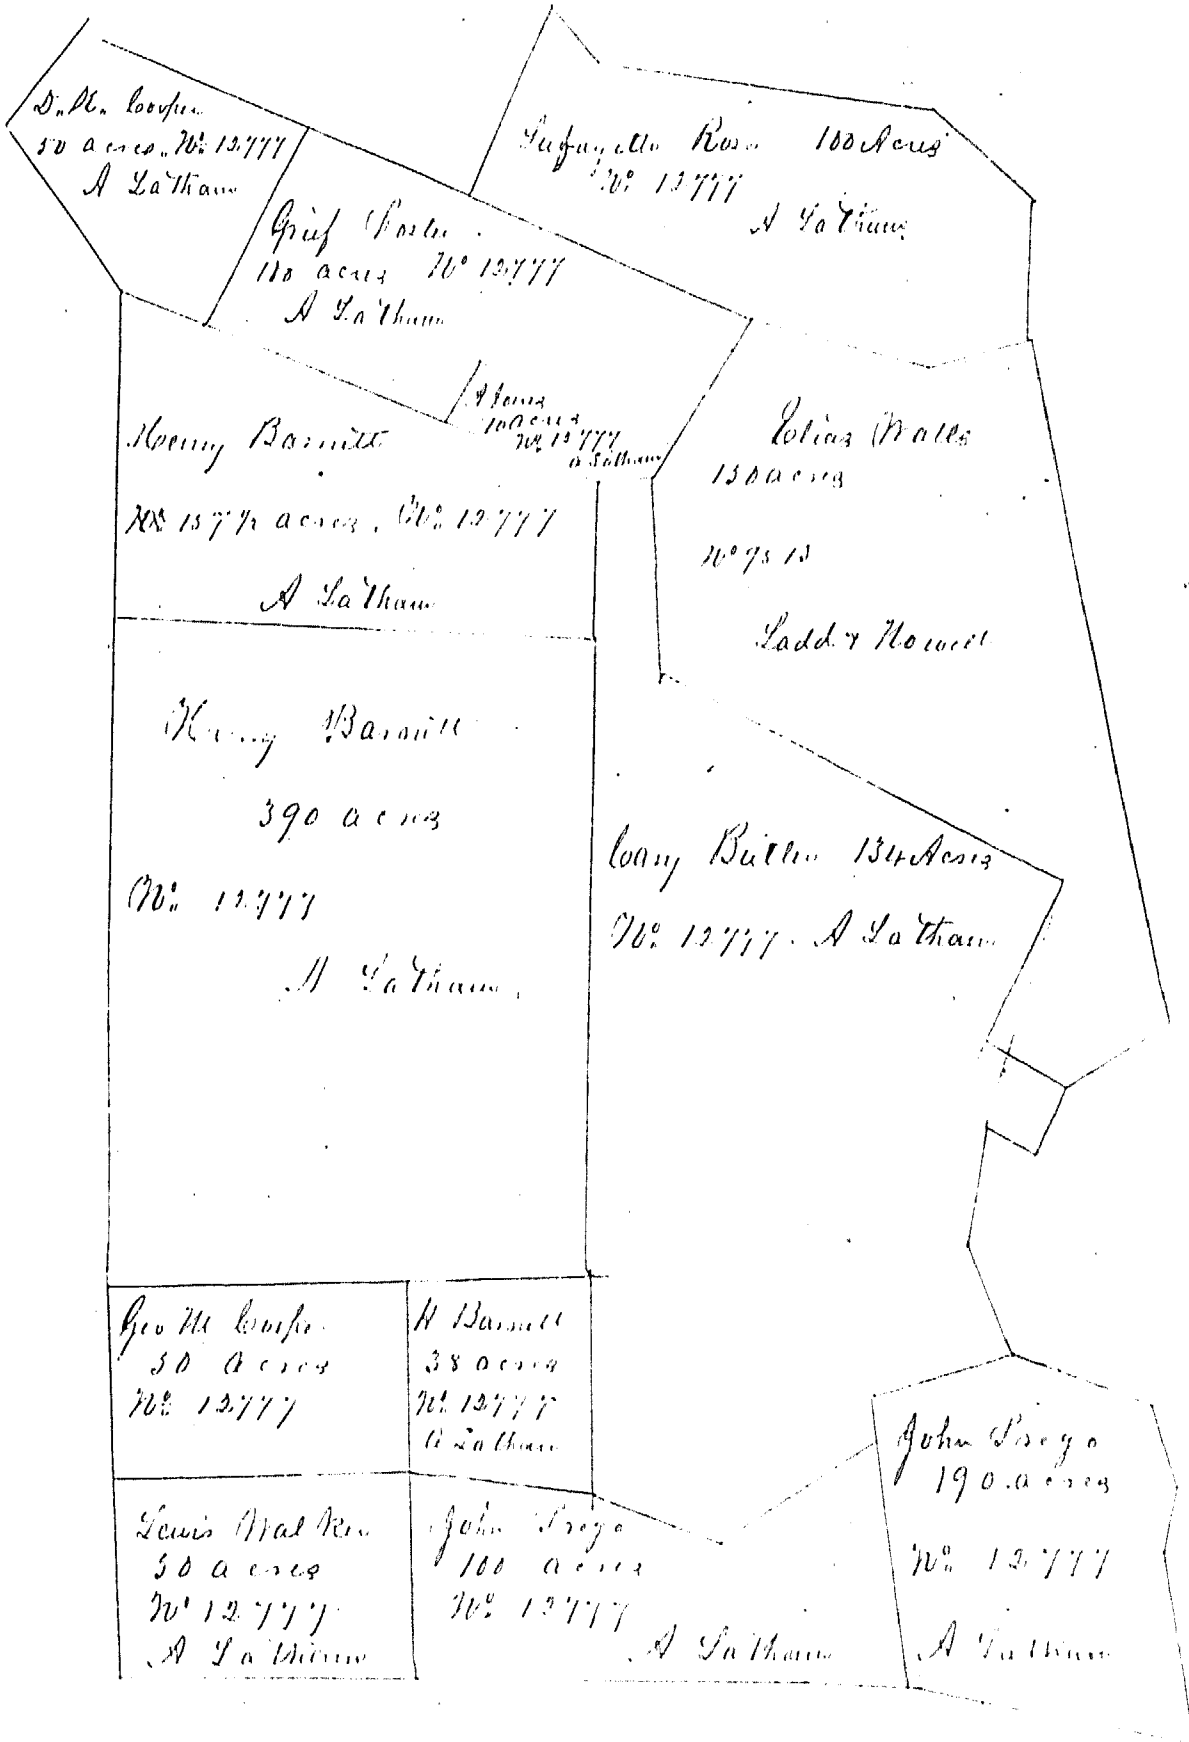 50 acres. No 12.777
A Latham
Lafayette Ross 100 Acres
No 12.777
A Latham
Grief
acres No 12.777
A Latham
10 acres
No 12777
A Latham
Henry Barnitt
157½ acres. No 12.777
A Latham
Elias Walls
150 acres
No
Ladd & Howell
Henry Barnitt
390 acres
No. 12.777
A Latham
Butler 134 Acres
No. 12.777. A Latham
Geo M Cooper
50 Acres
No 12.777
H Barnitt
38 acres
No. 12.777
A Latham
Lewis Walker
50 acres
No 12.777
A Latham
John
100 acres
No. 12777
A Latham
John
190. acres
No. 12.777
A Latham